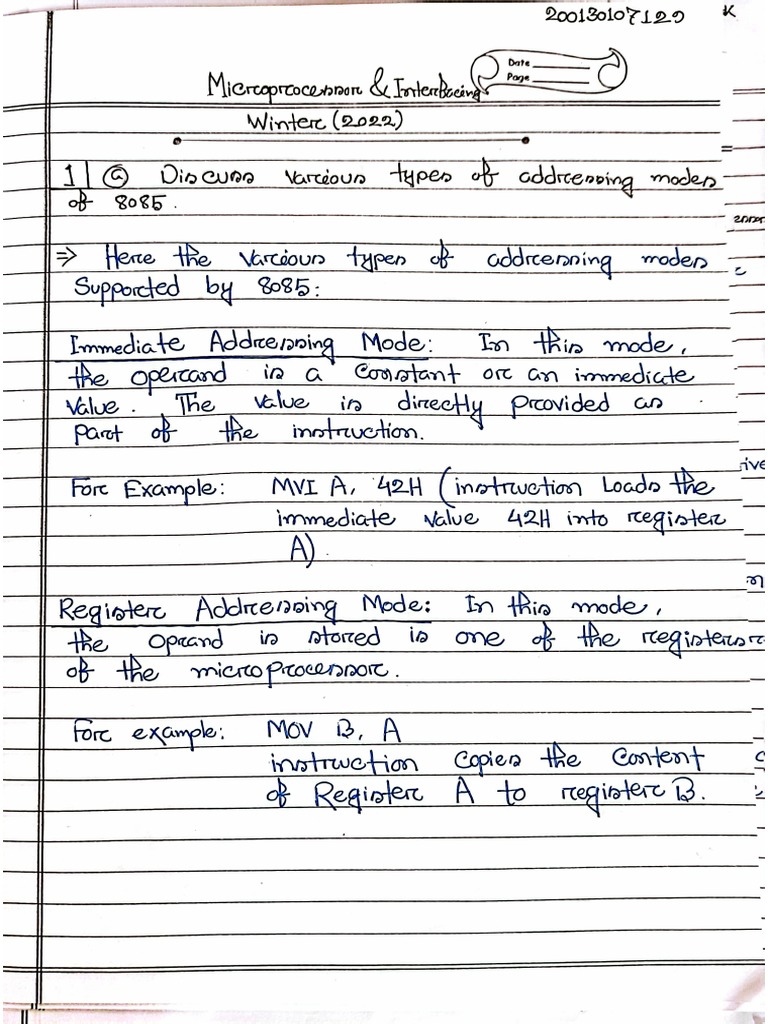 200130107129 K
Date
Page
Microprocessor & Interfacing
Winter (2022)
1 | (a) Discuss various types of addressing modes
of 8085.
⇒ Here the various types of addressing modes
Supported by 8085:
Immediate Addressing Mode: In this mode,
the operand is a constant or an immediate
value. The value is directly provided as
part of the instruction.
For Example: MVI A, 42H (instruction Loads the
immediate value 42H into register
A)
Register Addressing Mode: In this mode,
the oprand is stored is one of the registers
of the microprocessor.
For example: MOV B, A
instruction copies the content
of Register A to register B.